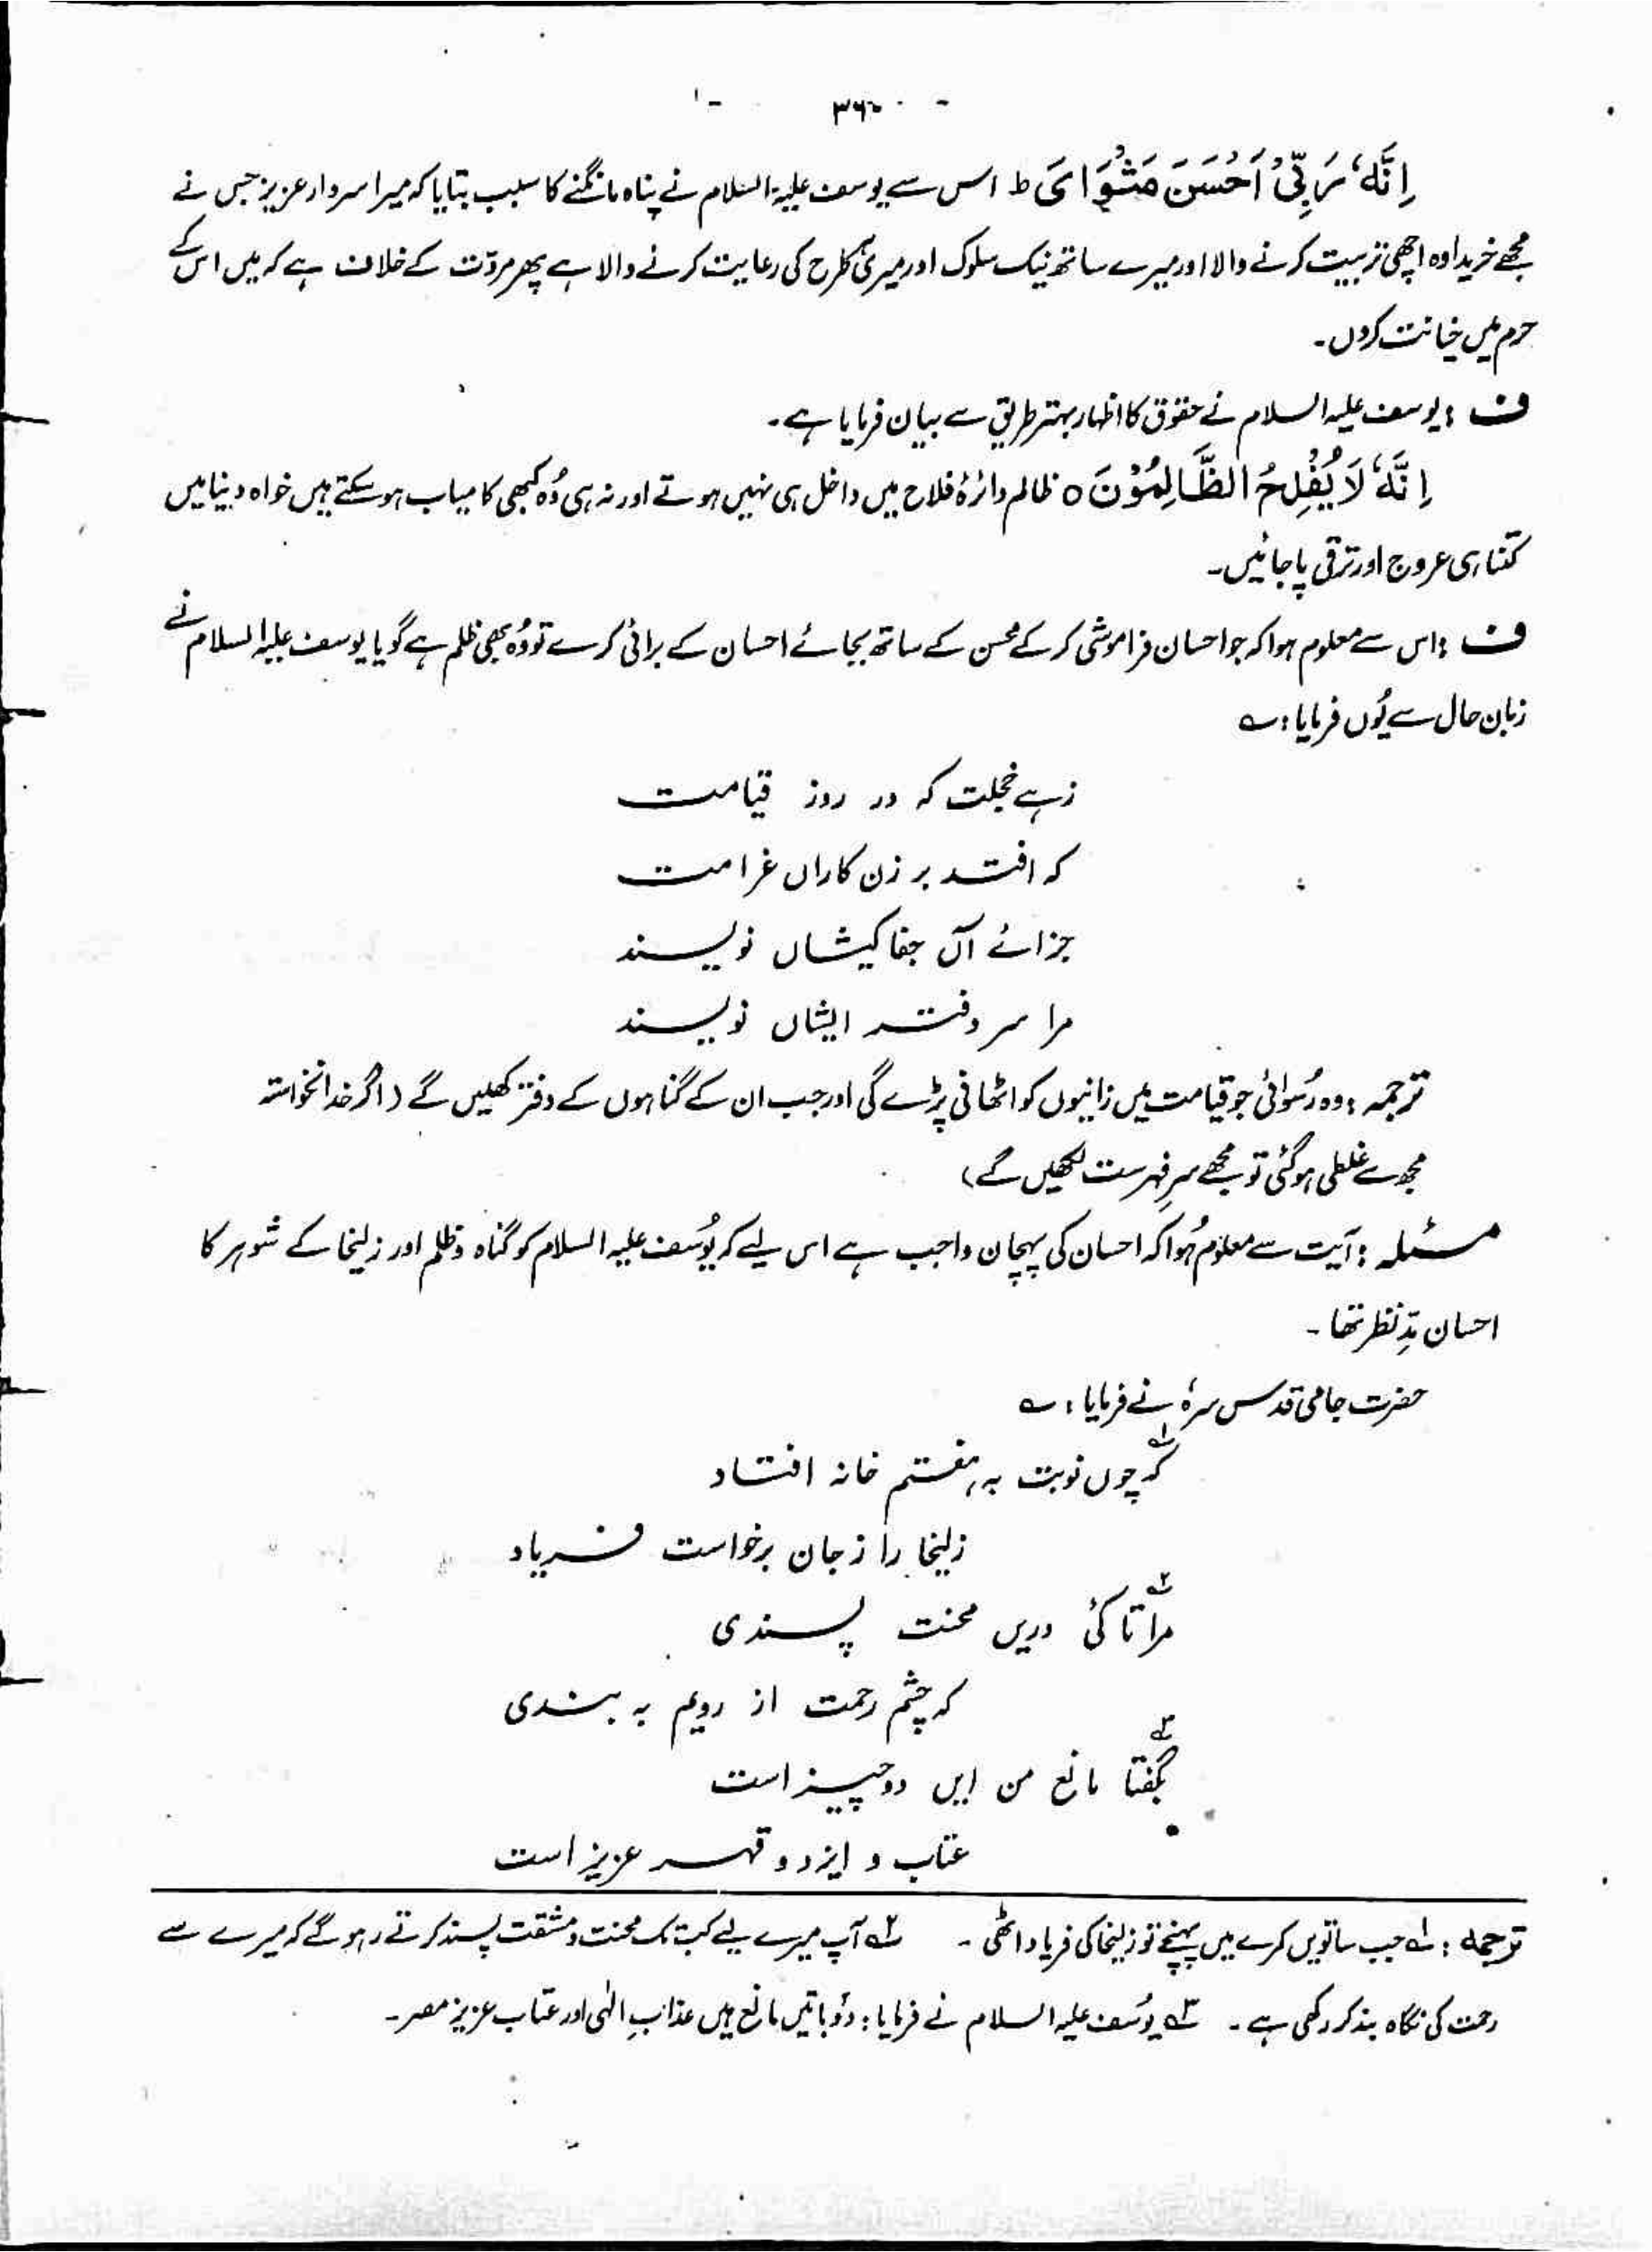 ۳۶۰
اِنَّهٗ رَبِّیْۤ اَحْسَنَ مَثْوَایَ ط اس سے یوسف علیہ السلام نے پناہ مانگنے کا سبب بتایا کہ میرا سردار عزیز جس نے
مجھے خریدا وہ اچھی تربیت کرنے والا اور میرے ساتھ نیک سلوک اور میری ہر طرح کی رعایت کرنے والا ہے پھر مروّت کے خلاف ہے کہ میں اس کے
حرم میں خیانت کروں۔
ف : یوسف علیہ السلام نے حقوق کا اظہار بہتر طریق سے بیان فرمایا ہے۔
اِنَّهٗ لَا یُفْلِحُ الظَّالِمُوْنَ ○ ظالم دائرۂ فلاح میں داخل ہی نہیں ہوتے اور نہ ہی وُہ کبھی کامیاب ہو سکتے ہیں خواہ دنیا میں
کتنا ہی عروج اور ترقی پا جائیں۔
ف : اس سے معلوم ہوا کہ جو احسان فراموشی کر کے محسن کے ساتھ بجائے احسان کے برائی کرے تو وُہ بھی ظلم ہے گویا یوسف علیہ السلام نے
زبان حال سے یُوں فرمایا : ؎
زہے خجلت کہ در روز قیامت
کہ افتد بر زن کاراں غرامت
جزائے آں جفا کیشاں نویسند
مرا سر دفتر ایشاں نویسند
ترجمہ : وہ رُسوائی جو قیامت میں زانیوں کو اٹھانی پڑے گی اور جب ان کے گناہوں کے دفتر کھلیں گے (اگر خدانخواستہ
مجھ سے غلطی ہو گئی تو مجھے سرِ فہرست لکھیں گے)
مسئلہ : آیت سے معلوم ہُوا کہ احسان کی پہچان واجب ہے اس لیے کہ یُوسف علیہ السلام کو گناہ و ظلم اور زلیخا کے شوہر کا
احسان مدِّ نظر تھا۔
حضرت جامی قدس سرہٗ نے فرمایا : ؎
۱؎ کہ چوں نوبت بہ ہفتم خانہ افتاد
زلیخا را ز جان برخواست فریاد
۲؎ مرا تا کئ دریں محنت پسندی
کہ چشم رحمت از رویم بہ بندی
۳؎ بگفتا مانع من ایں دو چیز است
عتاب و ایزد و قہر عزیز است
ترجمہ : ۱؎ جب ساتویں کمرے میں پہنچے تو زلیخا کی فریاد اٹھی۔ ۲؎ آپ میرے لیے کب تک محنت و مشقت پسند کرتے رہو گے کہ میرے سے
رحمت کی نگاہ بند کر رکھی ہے۔ ۳؎ یُوسف علیہ السلام نے فرمایا : دُو باتیں مانع ہیں عذابِ الٰہی اور عتاب عزیز مصر۔